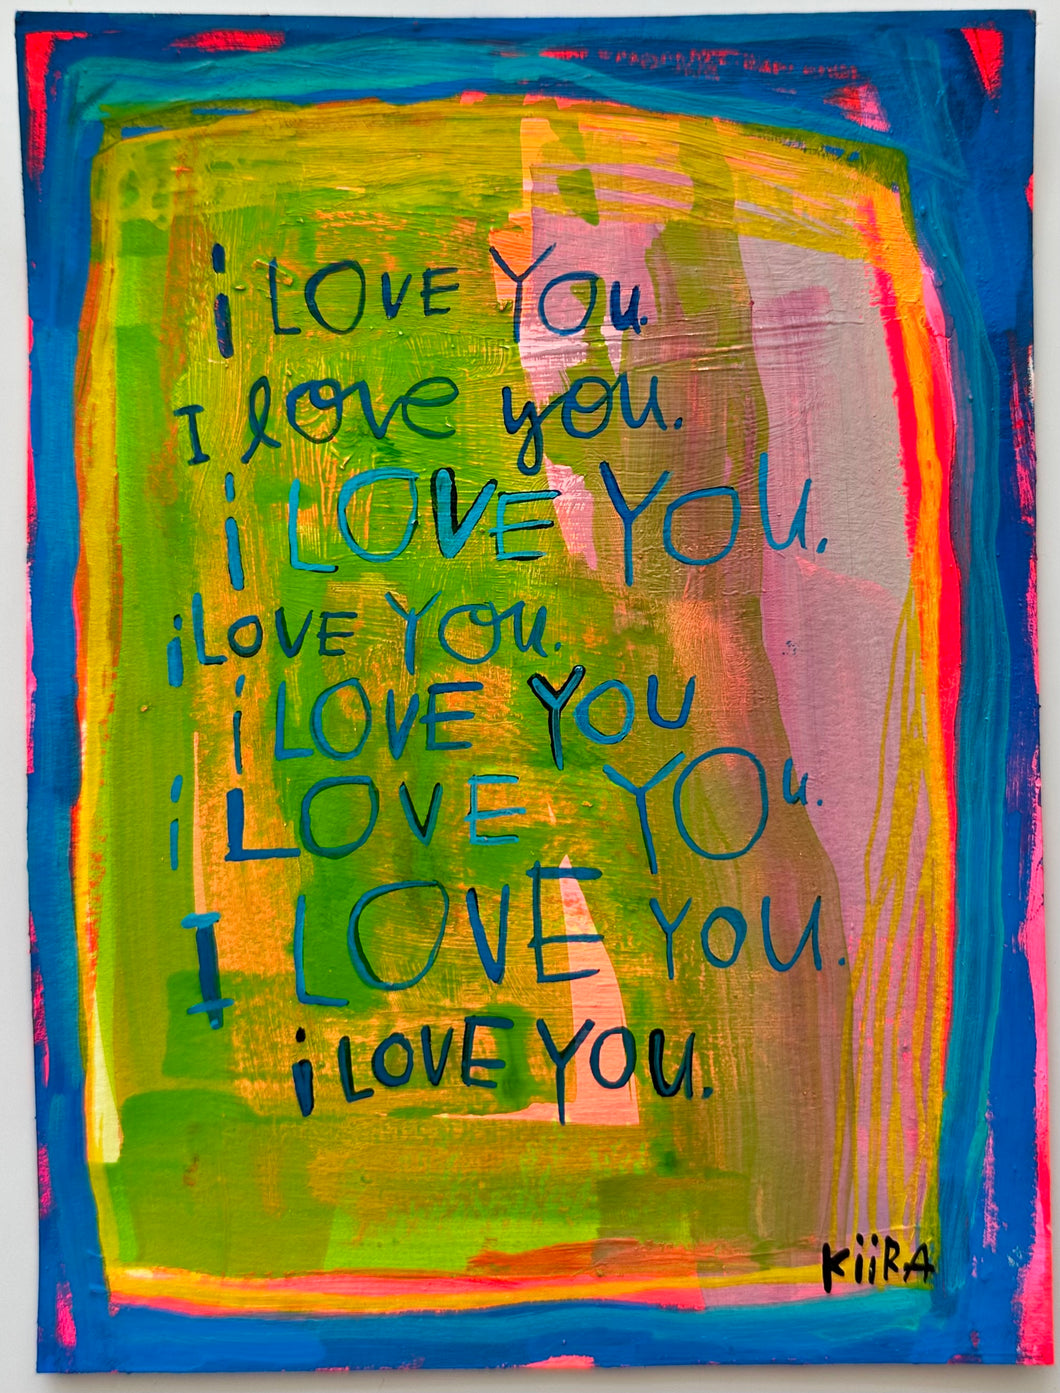 i LOVE YOU.
I love you.
i LOVE YOU.
i LOVE YOU.
i LOVE YOU
i LOVE YOU.
I LOVE YOU.
i LOVE YOU.
KiiRA